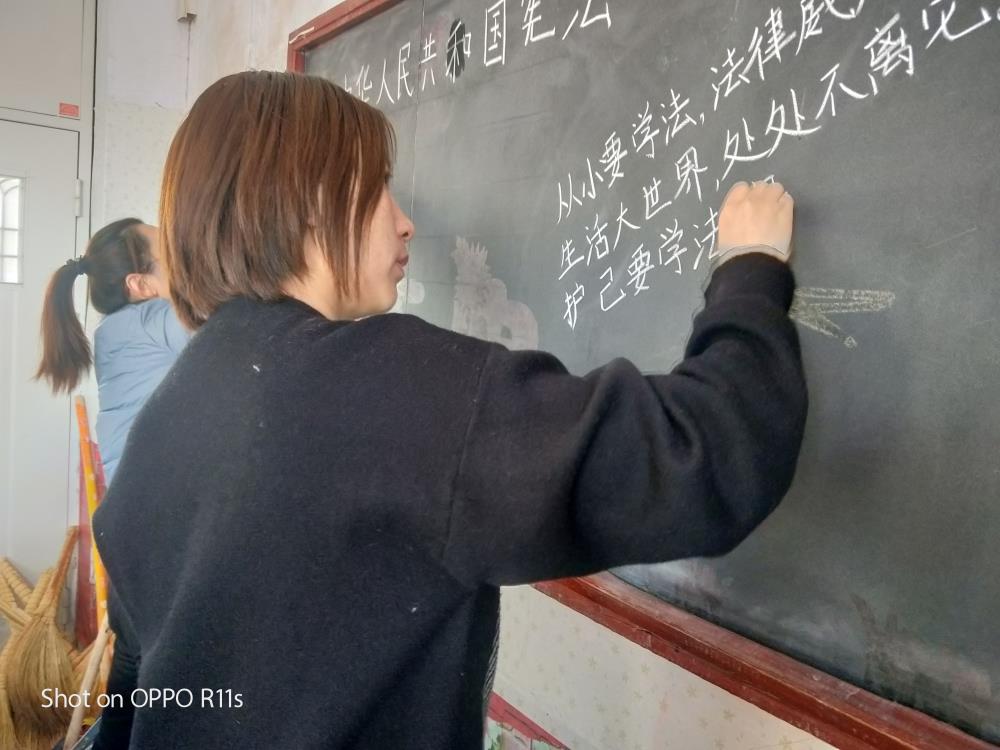 华人民共和国宪法
从小要学法,法律威
生活大世界,处处不离它
护己要学法
Shot on OPPO R11s